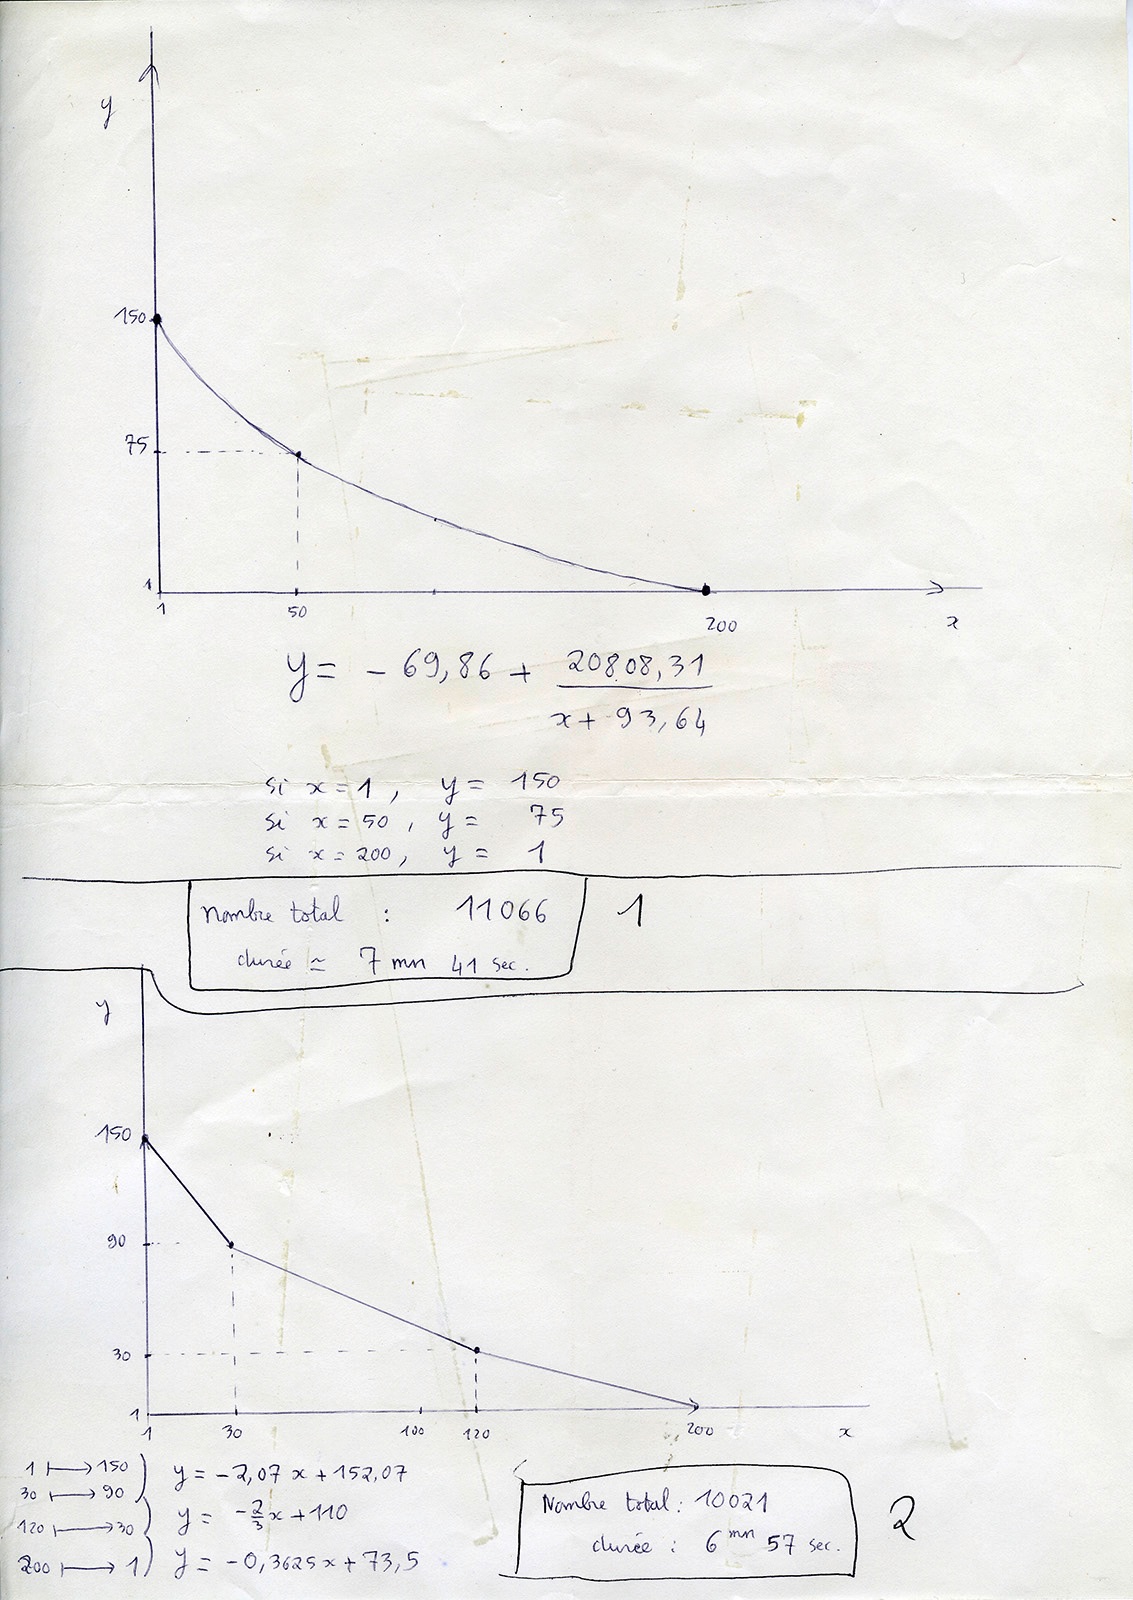 y
150
75
1
1 50 200 x
y = - 69,86 + 20808,31 / x + 93,64
si x = 1 , y = 150
si x = 50 , y = 75
si x = 200 , y = 1
Nombre total : 11066
durée ≃ 7 mn 41 sec.
1
y
150
90
30
1
1 30 100 120 200 x
1 ⟼ 150
30 ⟼ 90
120 ⟼ 30
200 ⟼ 1
y = -2,07 x + 152,07
y = -2/3 x + 110
y = -0,3625x + 73,5
Nombre total : 10021
durée : 6 mn 57 sec.
2